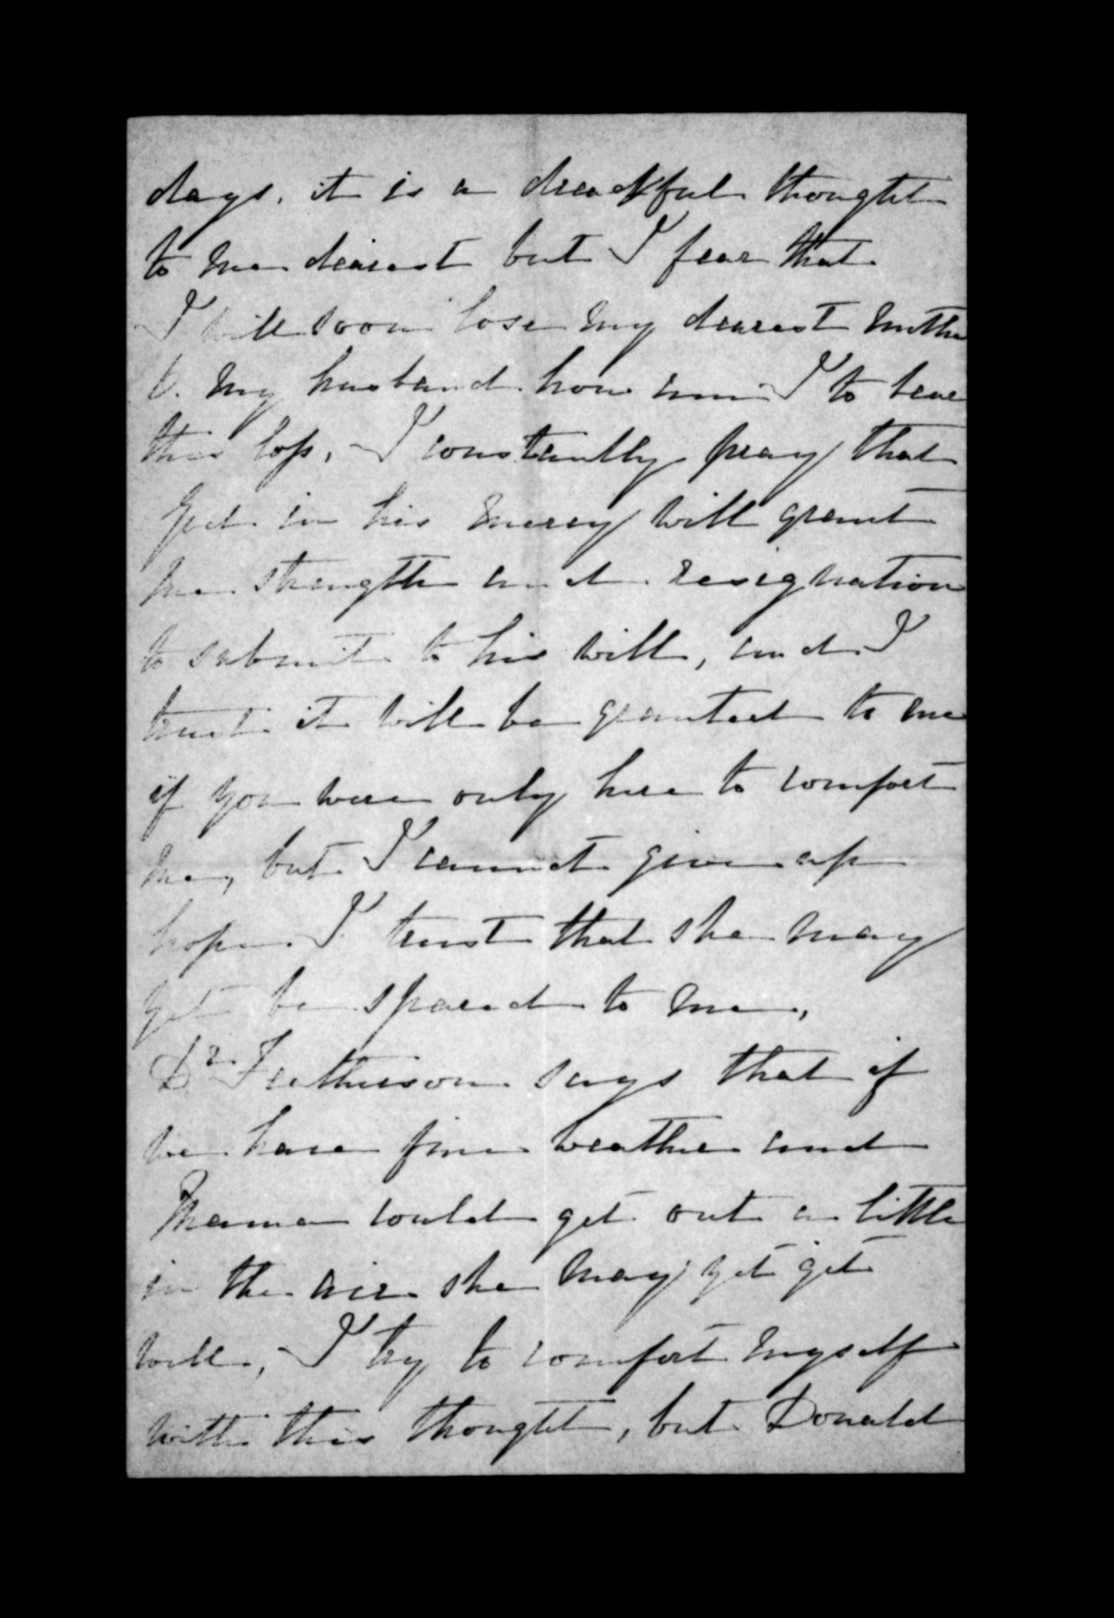 days. it is a dreadful thought
to me dearest but I fear that
I will soon lose my dearest Mother
O. my husband how am I to bear
this loss, I constantly pray that
God in his mercy will grant
me strength and resignation
to submit to his will, and I
trust it will be granted to me
if you were only here to comfort
me, but I cannot give up
hope. I trust that she may
yet be spared to me,
Dr. says that if
we have fine weather and
Mama could get out a little
in the air she may yet get
well, I try to comfort myself
with this thought, but Donald